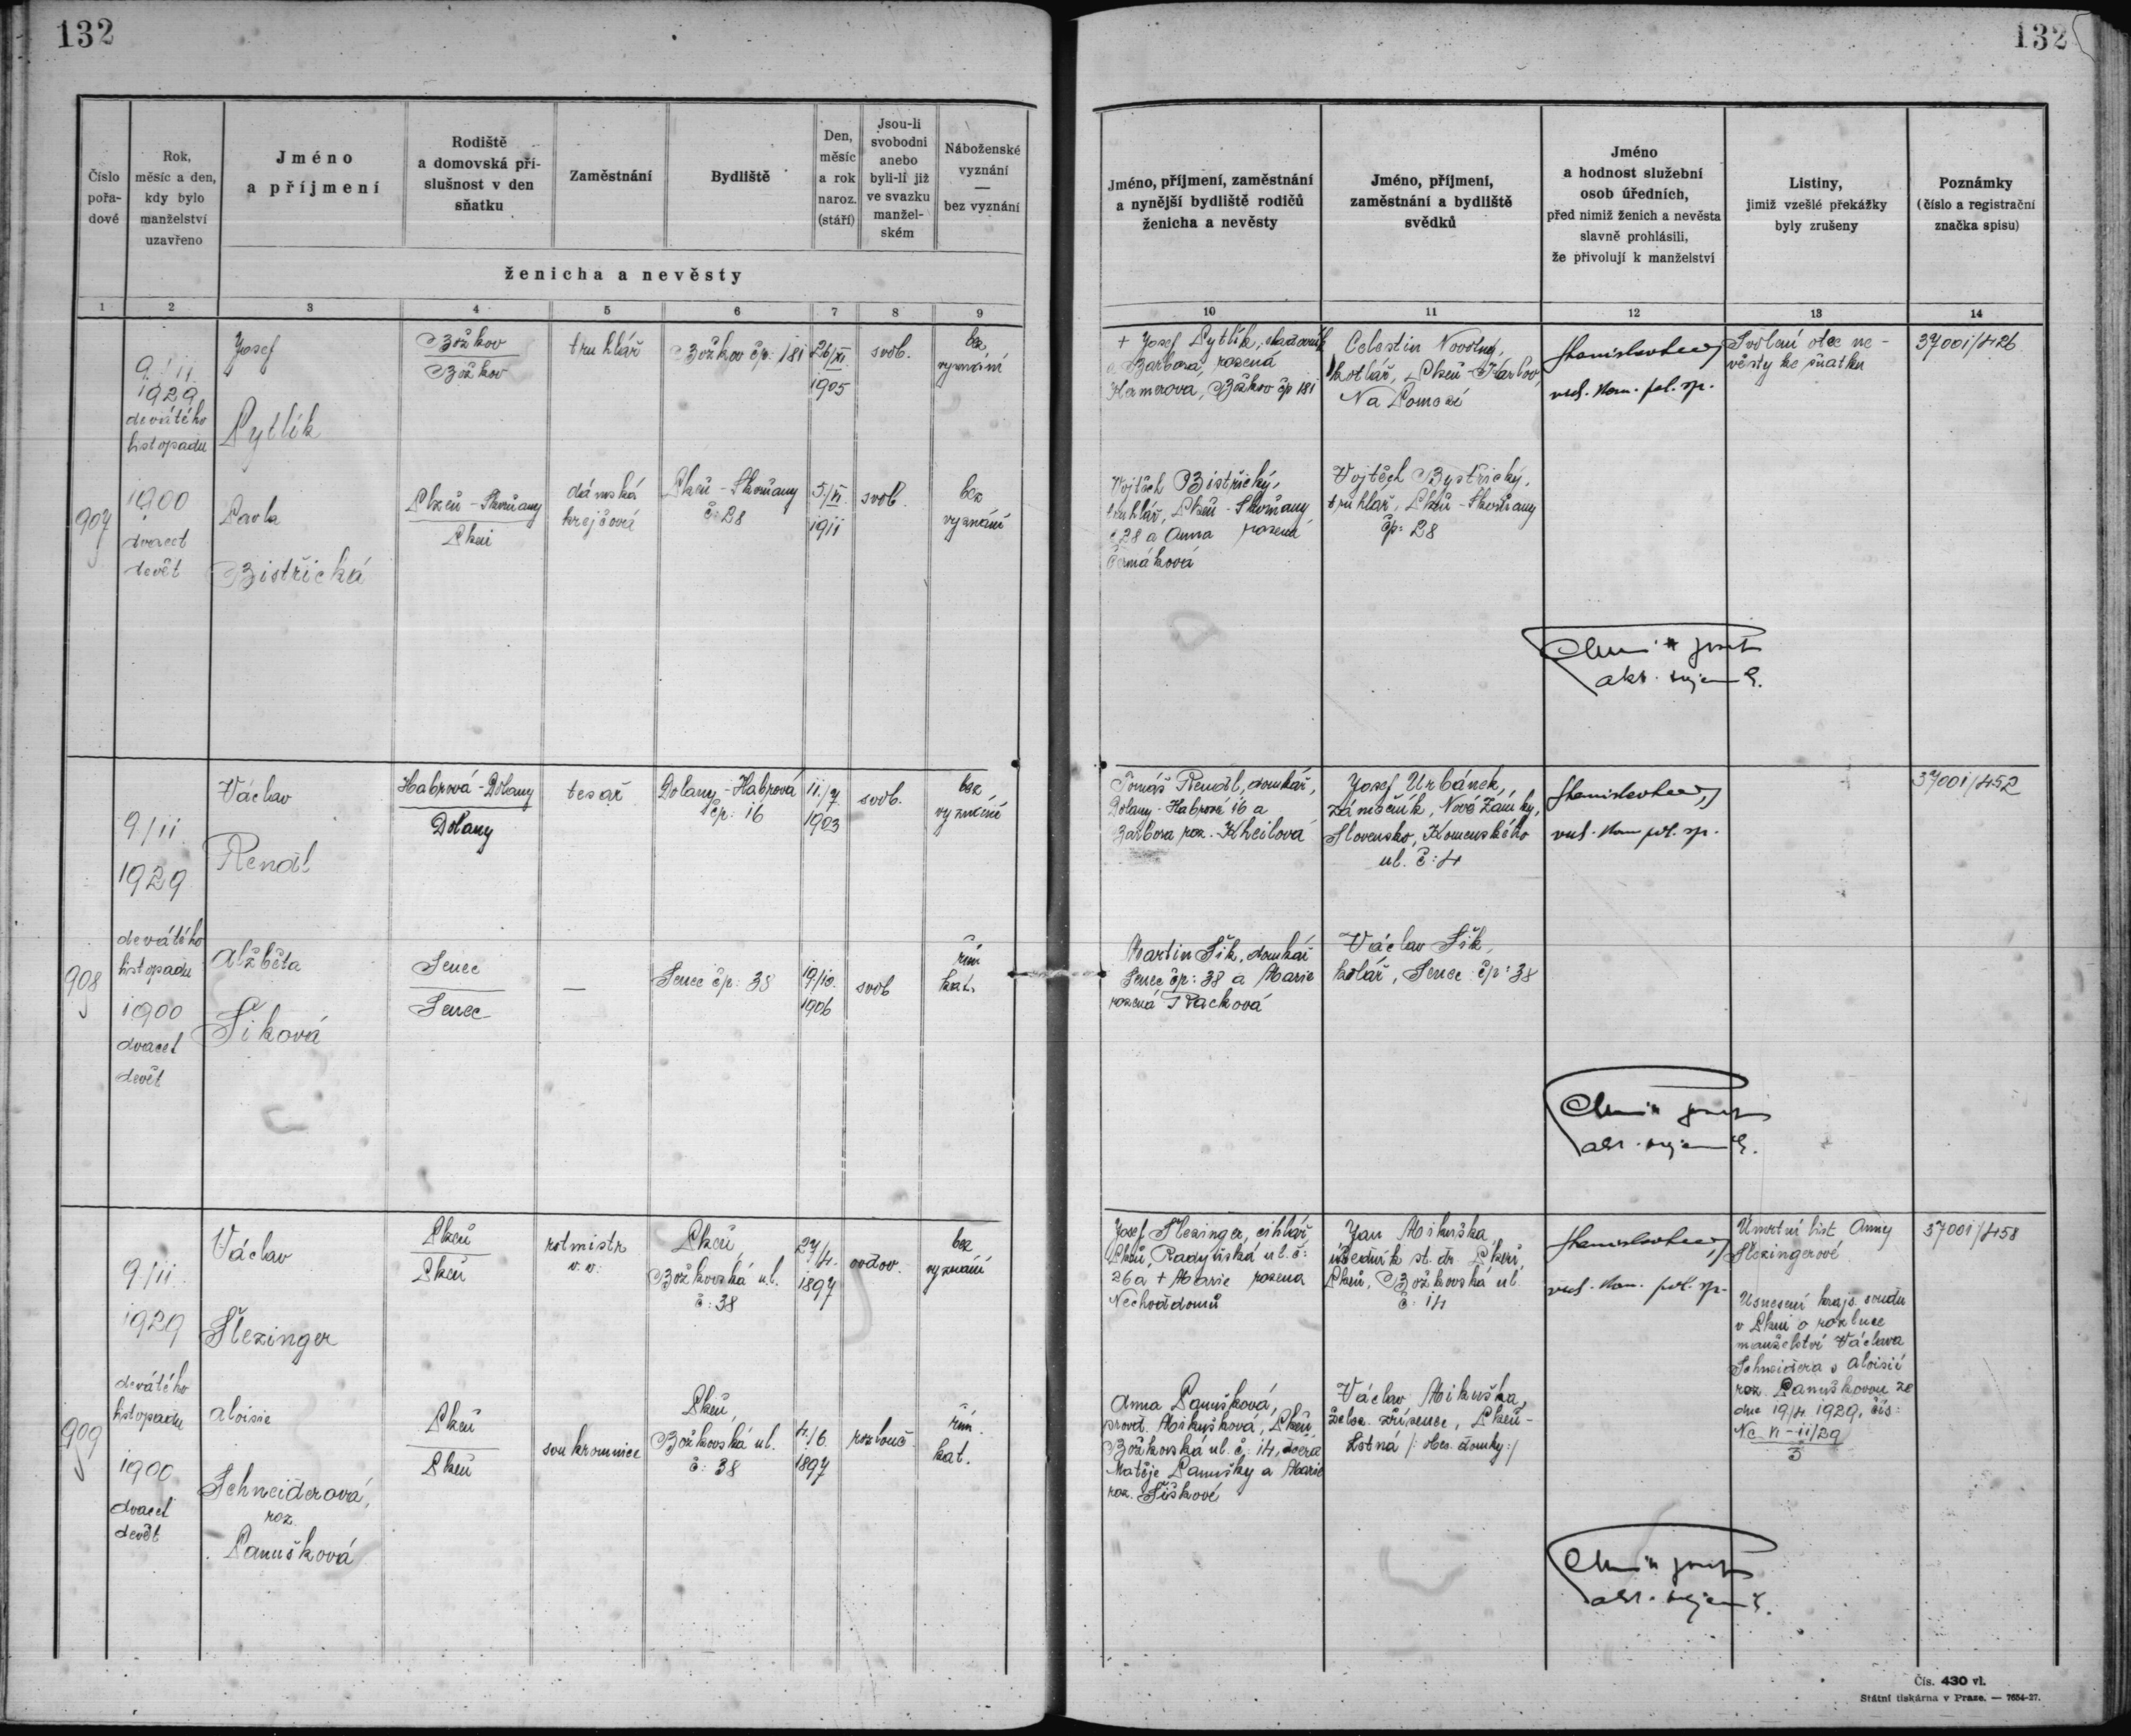 132
132
Číslo pořa-dové
Rok, měsíc a den, kdy bylo manželství uzavřeno
Jméno a příjmení
Rodiště a domovská pří-slušnost v den sňatku
Zaměstnání
Bydliště
Den, měsíc a rok naroz. (stáří)
Jsou-li svobodni anebo byli-li již ve svazku manžel-ském
Náboženské vyznání — bez vyznání
ženicha a nevěsty
Jméno, příjmení, zaměstnání a nynější bydliště rodičů ženicha a nevěsty
Jméno, příjmení, zaměstnání a bydliště svědků
Jméno a hodnost služební osob úředních, před nimiž ženich a nevěsta slavně prohlásili, že přivolují k manželství
Listiny, jimiž vzešlé překážky byly zrušeny
Poznámky (číslo a registrační značka spisu)
1 2 3 4 5 6 7 8 9 10 11 12 13 14
907
9./11.
1929
devátého
listopadu
1900
dvacet
devět
Josef
Pytlík
Božkov
Božkov
truhlář
Božkov čp: 181
26/XI.
1905
svob.
bez
vyznání
+ Josef Pytlík,
a Barbora, rozená
Hamrova, Božkov čp 181
Celestin Novotný,
kotlář, Plzeň-Karlov,
Na Pomezí
Svolení otce ne-
věsty ke sňatku
37001/426
Pavla
Bistřická
Plzeň-Skvrňany
Plzni
dámská
krejčová
Plzeň-Skvrňany
č: 28
5./VI.
1911
svob.
bez
vyznání
Vojtěch Bistřický,
truhlář, Plzeň-Skvrňany
č 28 a Anna rozená
Čermáková
Vojtěch Bystřický,
truhlář, Plzeň-Skvrňany
čp: 28
908
9/11.
1929
devátého
listopadu
1900
dvacet
devět
Václav
Rendl
Habrová-Dolany
Dolany
tesař
Dolany-Habrová
čp: 16
11./7.
1903
svob.
bez
vyznání
Tomáš Rendl, domkář,
Dolany-Habrová 16 a
Barbora roz. Kheilová
Josef Urbánek,
zámečník, Nové Zámky,
Slovensko, Komenského
ul. č: 4
37001/452
Alžběta
Šiková
Senec
Senec
—
Senec čp: 38
19/10.
1906
svob
řím
kat.
Martin Šik, domkář
Senec čp: 38 a Marie
rozená Racková
Václav Šik,
kolář, Senec čp: 38
909
9/11.
1929
devátého
listopadu
1900
dvacet
devět
Václav
Šlezinger
Plzeň
Plzeň
rotmistr
v. v.
Plzeň
Božkovská ul.
č: 38
27/4.
1897
ovdov.
bez
vyznání
Josef Šlezinger, cihlář,
Plzeň, Radyňská ul. č:
26 a + Marie rozená
Nechoďdomů
Jan Mikuška,
úředník st. dr. Plzeň,
Plzeň, Božkovská ul.
č: 14
Úmrtní list Anny
Šlezingerové
Usnesení kraj. soudu
v Plzni o rozluce
manželství Václava
Schneidera s Aloisií
roz. Panuškovou ze
dne 19/4. 1929, čís:
Nc VI-11/29
3
37001/458
Aloisie
Schneiderová,
roz
Panušková
Plzeň
Plzeň
soukromnice
Plzeň,
Božkovská ul.
č: 38
4./6.
1897
rozlouč.
řím.
kat.
Anna Panušková,
provd. Mikušková, Plzeň,
Božkovská ul. č: 14, dcera
Matěje Panušky a Marie
roz. Šiškové
Václav Mikuška,
želez. zřízenec, Plzeň-
Čís. 430 vl.
Státní tiskárna v Praze. — 7654-27.